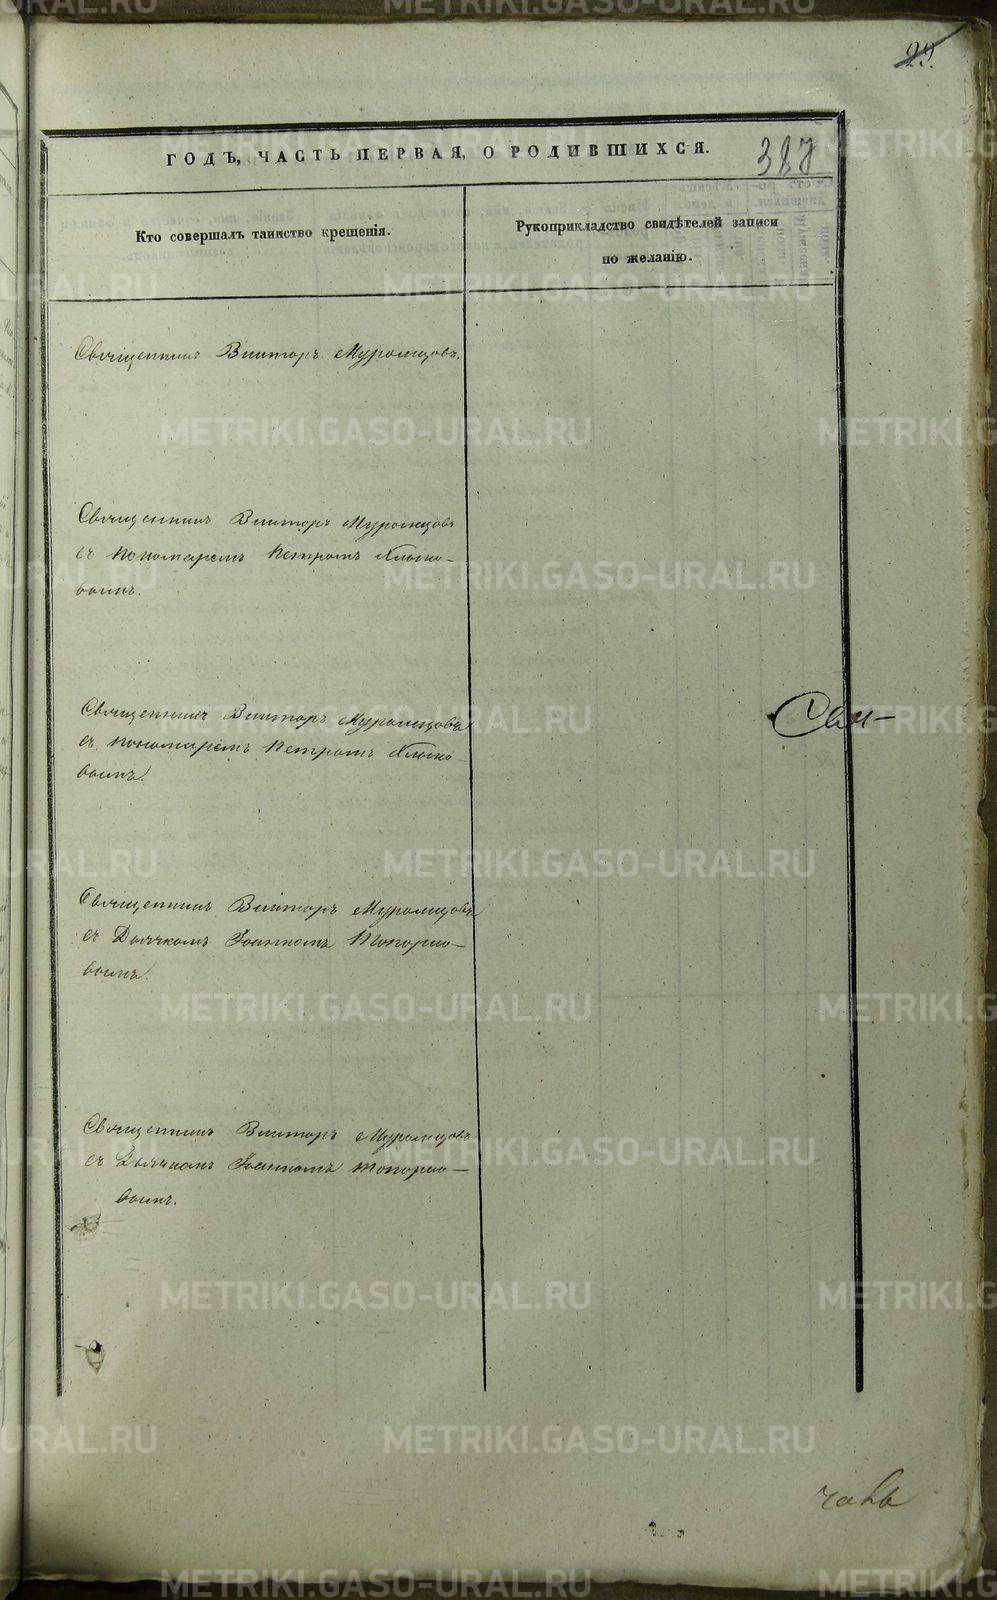 29.
ГОДЪ, ЧАСТЬ ПЕРВАЯ, О РОДИВШИХСЯ.
387
Кто совершалъ таинство крещенія.
Рукоприкладство свидѣтелей записи
по желанію.
Священникъ Викторъ Муромцовъ.
Священникъ Викторъ Муромцовъ
съ пономаремъ Петромъ Хлыно-
вымъ.
Священникъ Викторъ Муромцовъ
съ пономаремъ Петромъ Хлыно-
вымъ.
Священникъ Викторъ Муромцовъ
съ Дьячкомъ Іоанномъ Топорко-
вымъ.
Священникъ Викторъ Муромцовъ
съ Дьячкомъ Іоанномъ Топорко-
вымъ.
METRIKI.GASO-URAL.RU